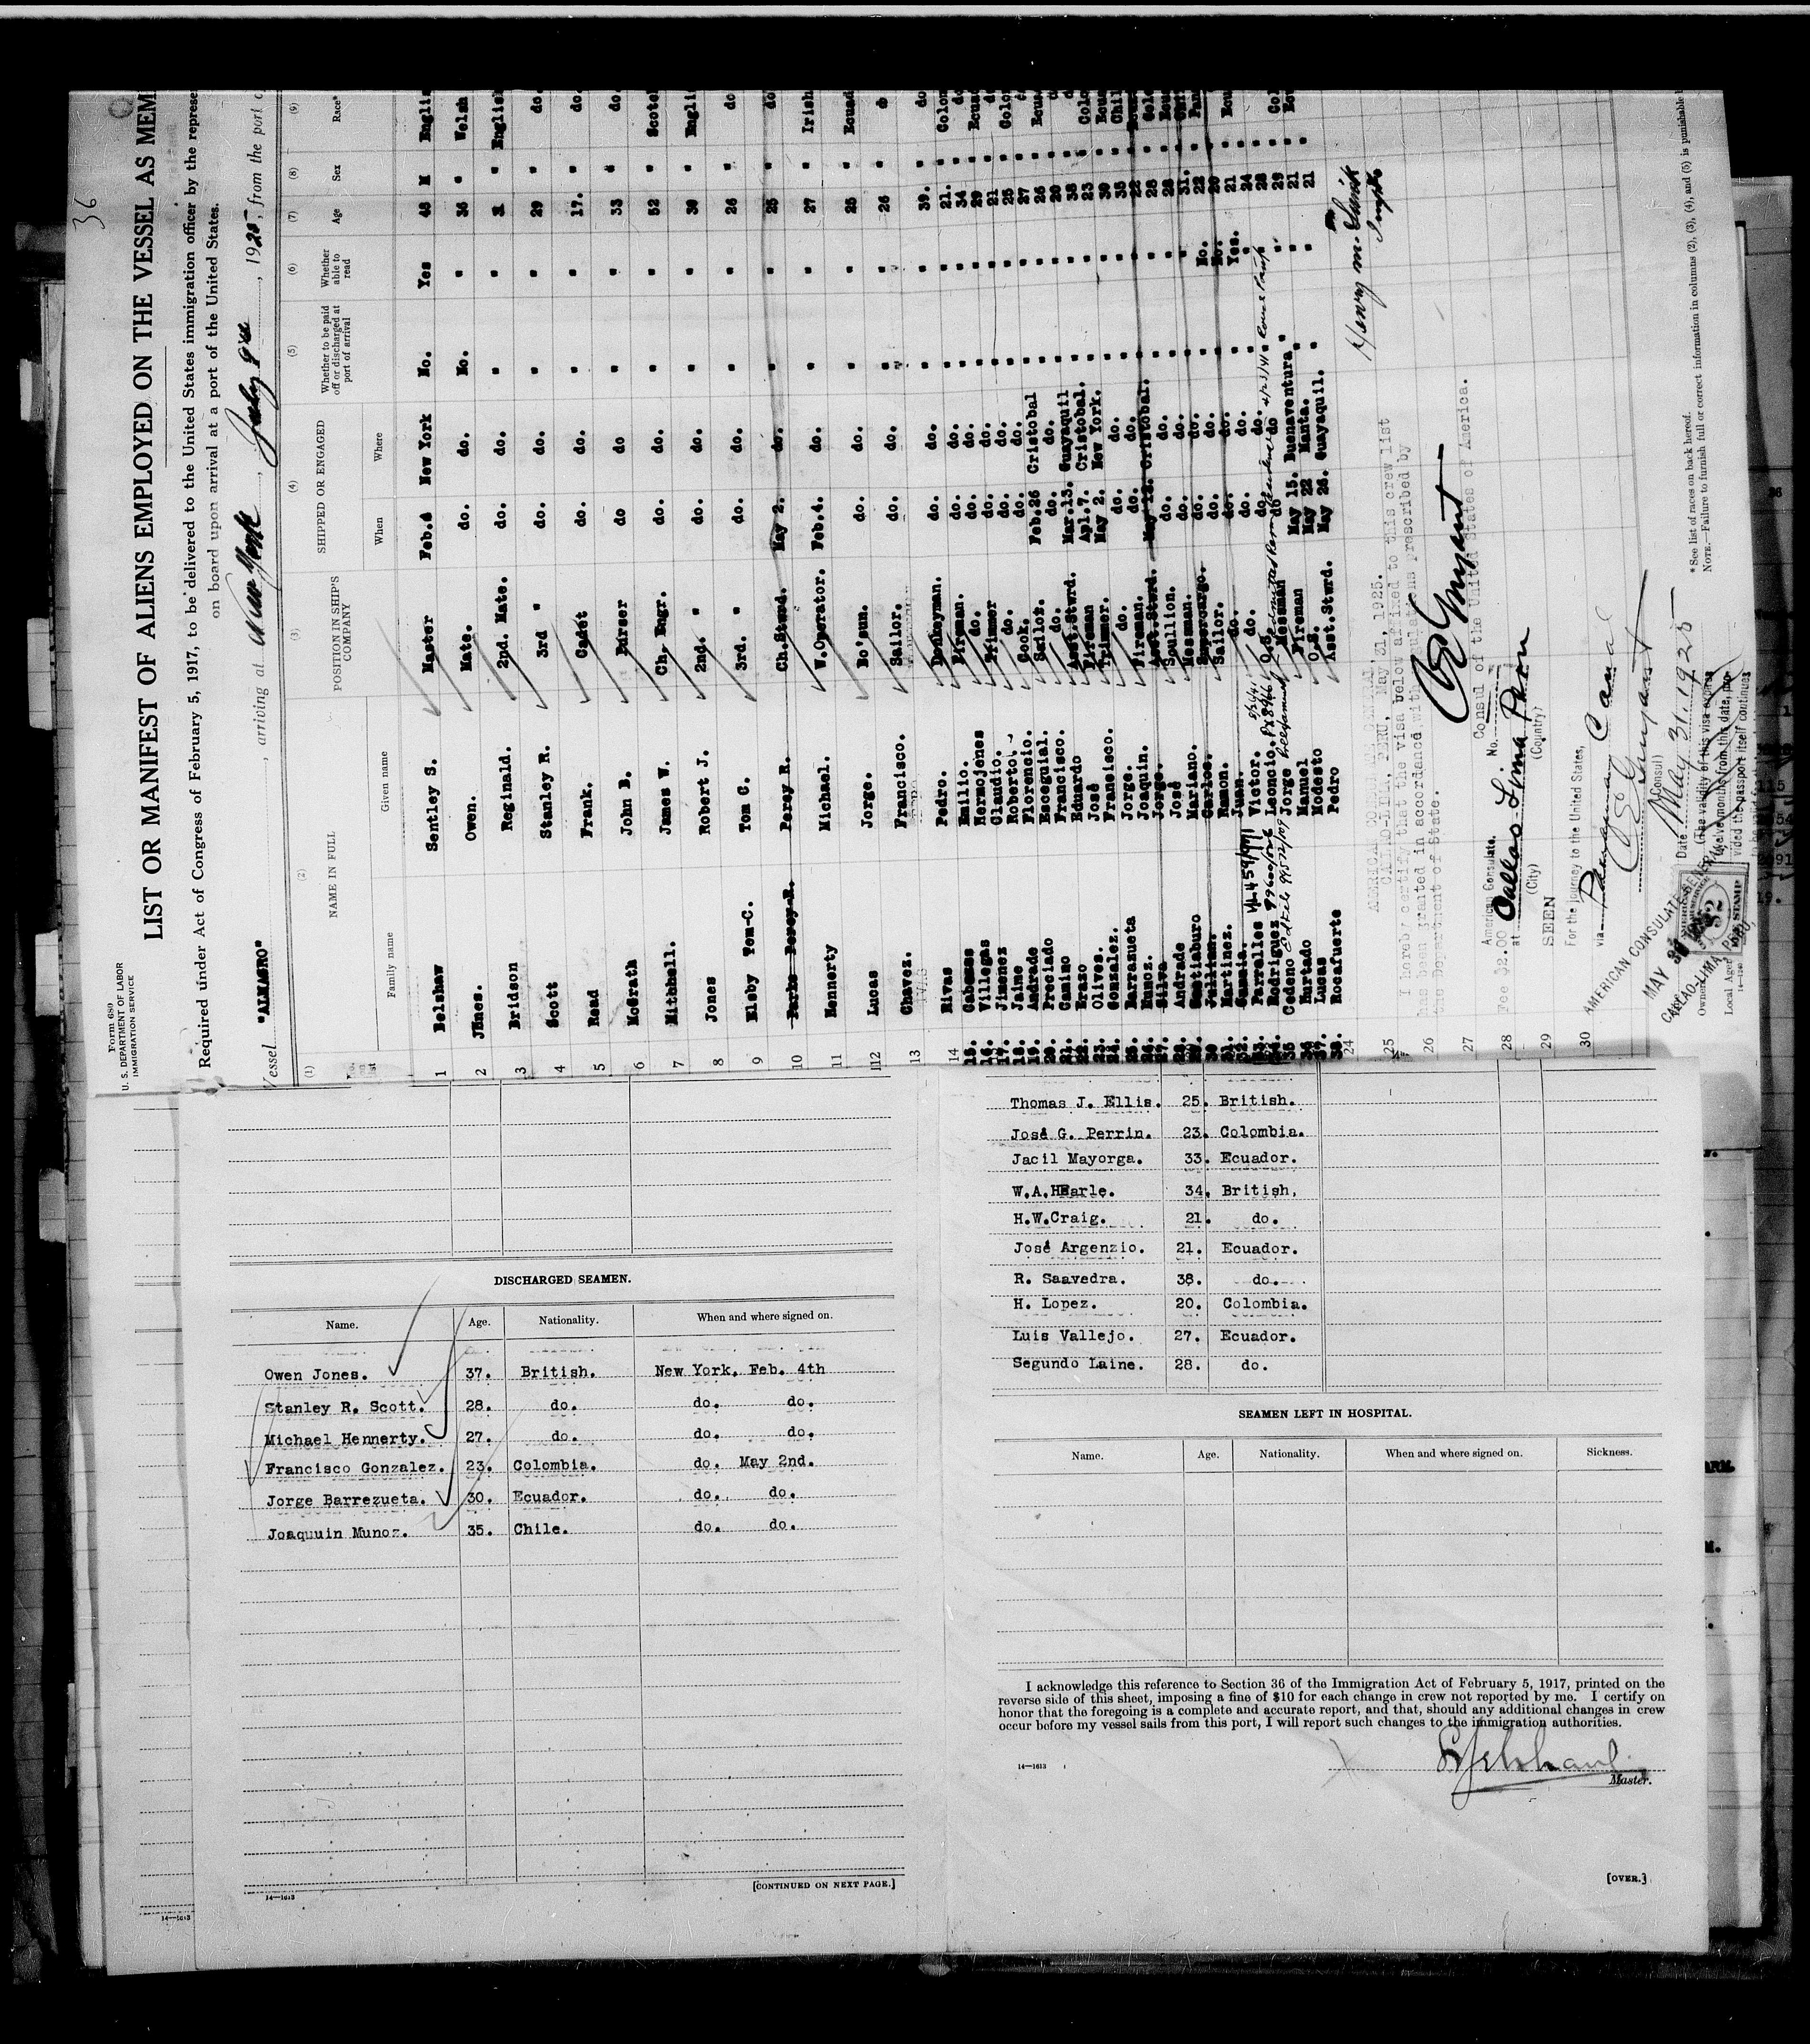 36
Form 689
U. S. DEPARTMENT OF LABOR
IMMIGRATION SERVICE
LIST OR MANIFEST OF ALIENS EMPLOYED ON THE VESSEL AS MEM
Required under Act of Congress of February 5, 1917, to be delivered to the United States immigration officer by the represe
on board upon arrival at a port of the United States.
Vessel "ALMAGRO", arriving at New York, July 9th, 1925, from the port o
(1) (2) (3) (4) (5) (6) (7) (8) (9)
NAME IN FULL POSITION IN SHIP'S COMPANY SHIPPED OR ENGAGED Whether to be paid off or discharged at port of arrival Whether able to read Age Sex Race*
Family name Given name When Where
1 Belshaw Sentley S. Master Feb.4 New York No. Yes 48 M Englis
2 Jones. Owen. Mate. do. do. No. " 36 " Welsh
3 Bridson Reginald. 2nd. Mate. do. do. " " " English
4 Scott Stanley R. 3rd " do. do. " " 29 " do.
5 Read Frank. Cadet do. do. " " 17. " do.
6 McGrath John B. Purser do do " " 33 " do.
7 Mitchell. James W. Ch. Engr. do. do. " " 52 " Scotc
8 Jones Robert J. 2nd. " do. do. " " 30 " Engli
9 Elsby Tom C. Tom C. 3rd. " do. do. " " 26 " do
10 Parks Percy R. Percy R. Ch.Stwrd. May 2. do. " " 25 " do
11 Hennerty Michael. W.Operator. Feb.4. do. " " 27 " Irish
12 Lucas Jorge. Bo'sun. do. do. " " 25 " Ecuad
13 Chavez. Francisco. Sailor. do. do. " " 26 " do
14 Rivas Pedro. Donkeyman. do. do. " " 39. " do
15. Cabezas Emilio. Fireman. do. do. " " 21. " Colom
16. Villegas Hermojenes do. do. do. " " 34 " do
17. Jimenez Claudio. Trimmer do. do. " " 29 " Ecuad
18. Jaime Roberto. do. do. do. " " 21 "
19. Andrade Florencio. Cook. do. do. " " 25 " Colom
20. Preciado Esceguial. Sailor. Feb.26 Cristobal " " 27 "
21. Camino Francisco. do. do. do. " " 26 " Ecua
22. Erazo Eduardo Asst.Stwrd. Mar.13. Guayaquil " " 20 "
23. Olives. José Fireman Apl.7. Cristobal. " " 38 "
24. Gonzalez. Francisco. Trimmer. May 2. New York. " " 23 " Colo
25. Barrazueta Jorge. do. do. do. " " 30 " Ecua
26. Munoz. Joaquin. Fireman. do. do. " " 35 " Chil
27. Silva Jorge. Asst.Stwrd. May 12. Cristobal. " " 22 "
28. Andrade José Scullion. do. do. " " 28
29. Mariano. Mesman. do. do. " " 28
30 Julian. Carlos. Supercargo. do. do. " " 31.
31. Martinez. Ramon. Sailor. do. do. " No. 22
32. Juan. do. do. do. " No. 20
33. Parrelles Victor. do. do. do. " Yes. 21
34. Rodriguez Leoncio. O.S. do. do. " " 24
35 Cedeno Jorge Messman do do " " 28
36 Hurtado Manuel Fireman May 15. Buenaventura " " 29 " Col
37. Lucas Modesto O.S. May 22 Manta. " " 21 " Ecu
38. Rocafuerte Pedro Asst.Stwrd. May 26. Guayaquil. " " 21
24
25
26
27
28
29
30
CALLAO-LIMA, PERU, May 31, 1925.
I hereby certify that the visa below affixed to this crew list
has been granted in accordance with regulations prescribed by
the Department of State.
Consul of the United States of America.
American Consulate. No.
Fee $2.00 at Callao Lima Peru
(City) (Country)
SEEN
For the journey to the United States,
via Panama Canal
(Consul)
Date May 31, 1925
(The validity of this visa expires
twelve months from this date, pro-
vided the passport itself continues
AMERICAN CONSULATE GENERAL
MAY 31 1925
CALLAO-LIMA, PERU,
$2
Local Agent
* See list of races on back hereof.
NOTE.—Failure to furnish full or correct information in columns (2), (3), (4), and (5) is punishable
DISCHARGED SEAMEN.
Name. Age. Nationality. When and where signed on.
Owen Jones. 37. British. New York. Feb. 4th
Stanley R. Scott. 28. do. do. do.
Michael Hennerty. 27. do. do. do.
Francisco Gonzalez. 23. Colombia. do. May 2nd.
Jorge Barrezueta. 30. Ecuador. do. do.
Joaquuin Munoz. 35. Chile. do. do.
14—1613
[CONTINUED ON NEXT PAGE.]
14—1613
Thomas J. Ellis. 25. British.
José G. Perrin. 23. Colombia.
Jacil Mayorga. 33. Ecuador.
W.A.HEarle. 34. British,
H.W.Craig. 21. do.
José Argenzio. 21. Ecuador.
R. Saavedra. 38. do.
H. Lopez. 20. Colombia.
Luis Vallejo. 27. Ecuador.
Segundo Laine. 28. do.
SEAMEN LEFT IN HOSPITAL.
Name. Age. Nationality. When and where signed on. Sickness.
I acknowledge this reference to Section 36 of the Immigration Act of February 5, 1917, printed on the
reverse side of this sheet, imposing a fine of $10 for each change in crew not reported by me. I certify on
honor that the foregoing is a complete and accurate report, and that, should any additional changes in crew
occur before my vessel sails from this port, I will report such changes to the immigration authorities.
14—1613
Master.
[OVER.]